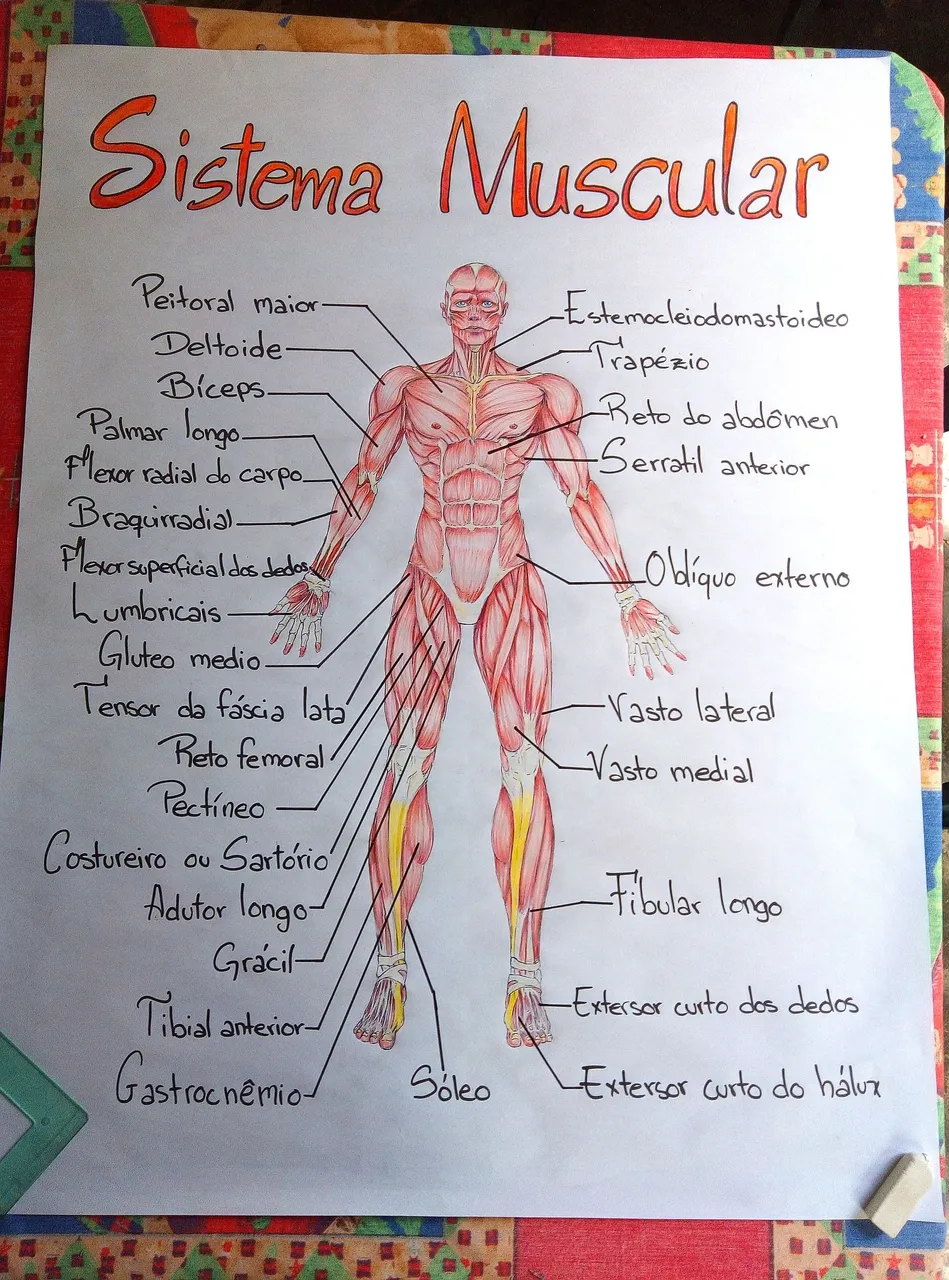 Sistema Muscular
Peitoral maior
Deltoide
Bíceps
Palmar longo
Flexor radial do carpo
Braquirradial
Flexor superficial dos dedos
Lumbricais
Gluteo medio
Tensor da fáscia lata
Reto femoral
Pectíneo
Costureiro ou Sartório
Adutor longo
Grácil
Tibial anterior
Gastrocnêmio
Sóleo
Esternocleiodomastoideo
Trapézio
Reto do abdômen
Serratil anterior
Oblíquo externo
Vasto lateral
Vasto medial
Fibular longo
Extersor curto dos dedos
Extersor curto do hálux